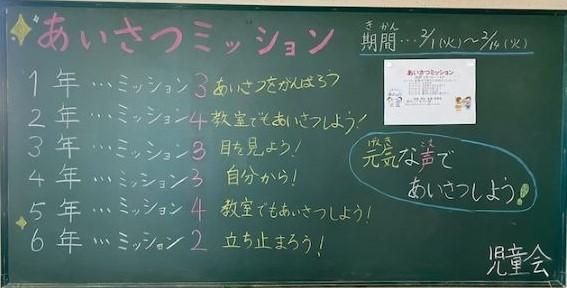 あいさつミッション
きかん
期間…2/1(火)～2/14(火)
1年…ミッション3 あいさつをがんばろう
2年…ミッション4 教室でもあいさつしよう！
3年…ミッション3 目を見よう！
4年…ミッション3 自分から！
5年…ミッション4 教室でもあいさつしよう！
6年…ミッション2 立ち止まろう！
あいさつミッション
げんき こえ
元気な声で
あいさつしよう！
児童会